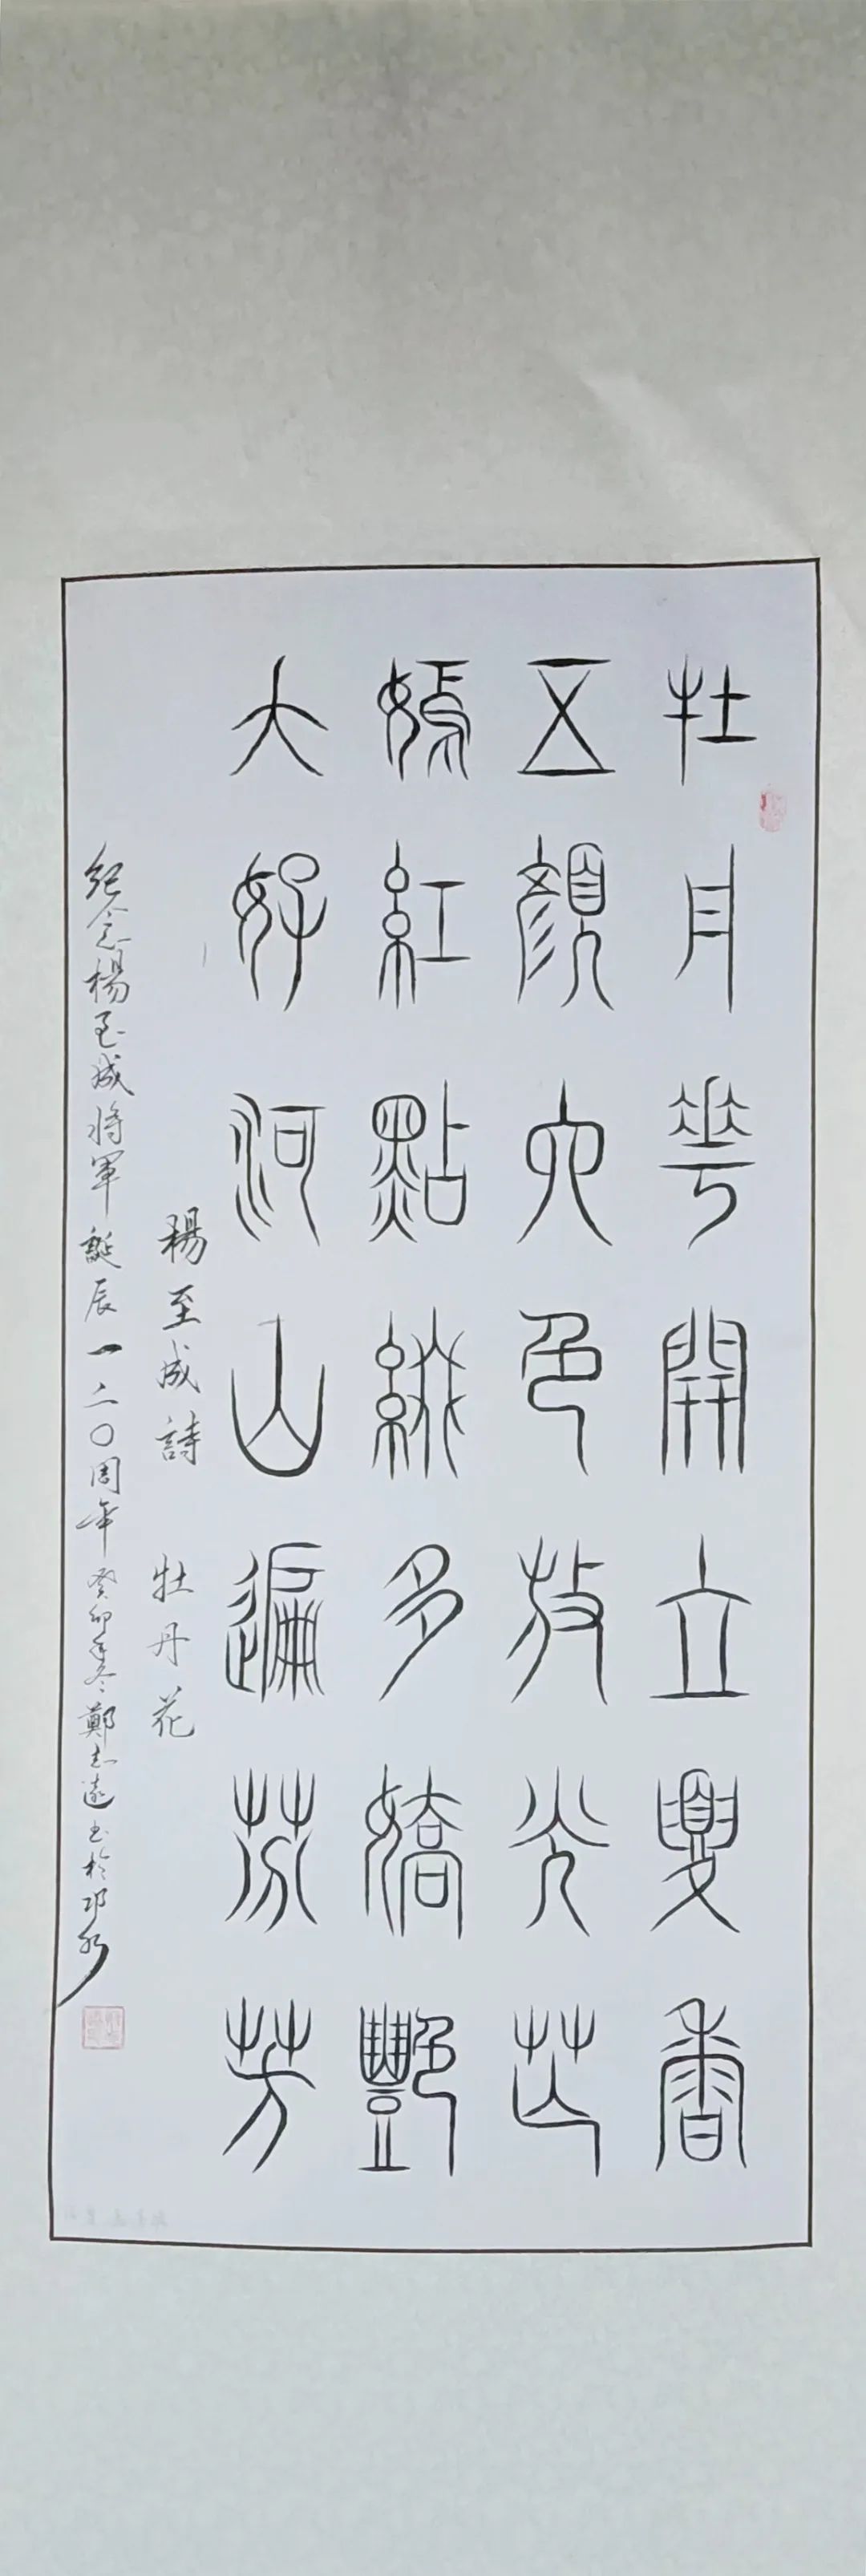 牡丹華開立夏香
五顏六色放光芒
嫣紅點綴多嬌艷
大好河山遍芬芳
楊至成詩 牡丹花
紀念楊至成將軍誕辰一二〇周年癸卯年冬鄭志遠書於邛水